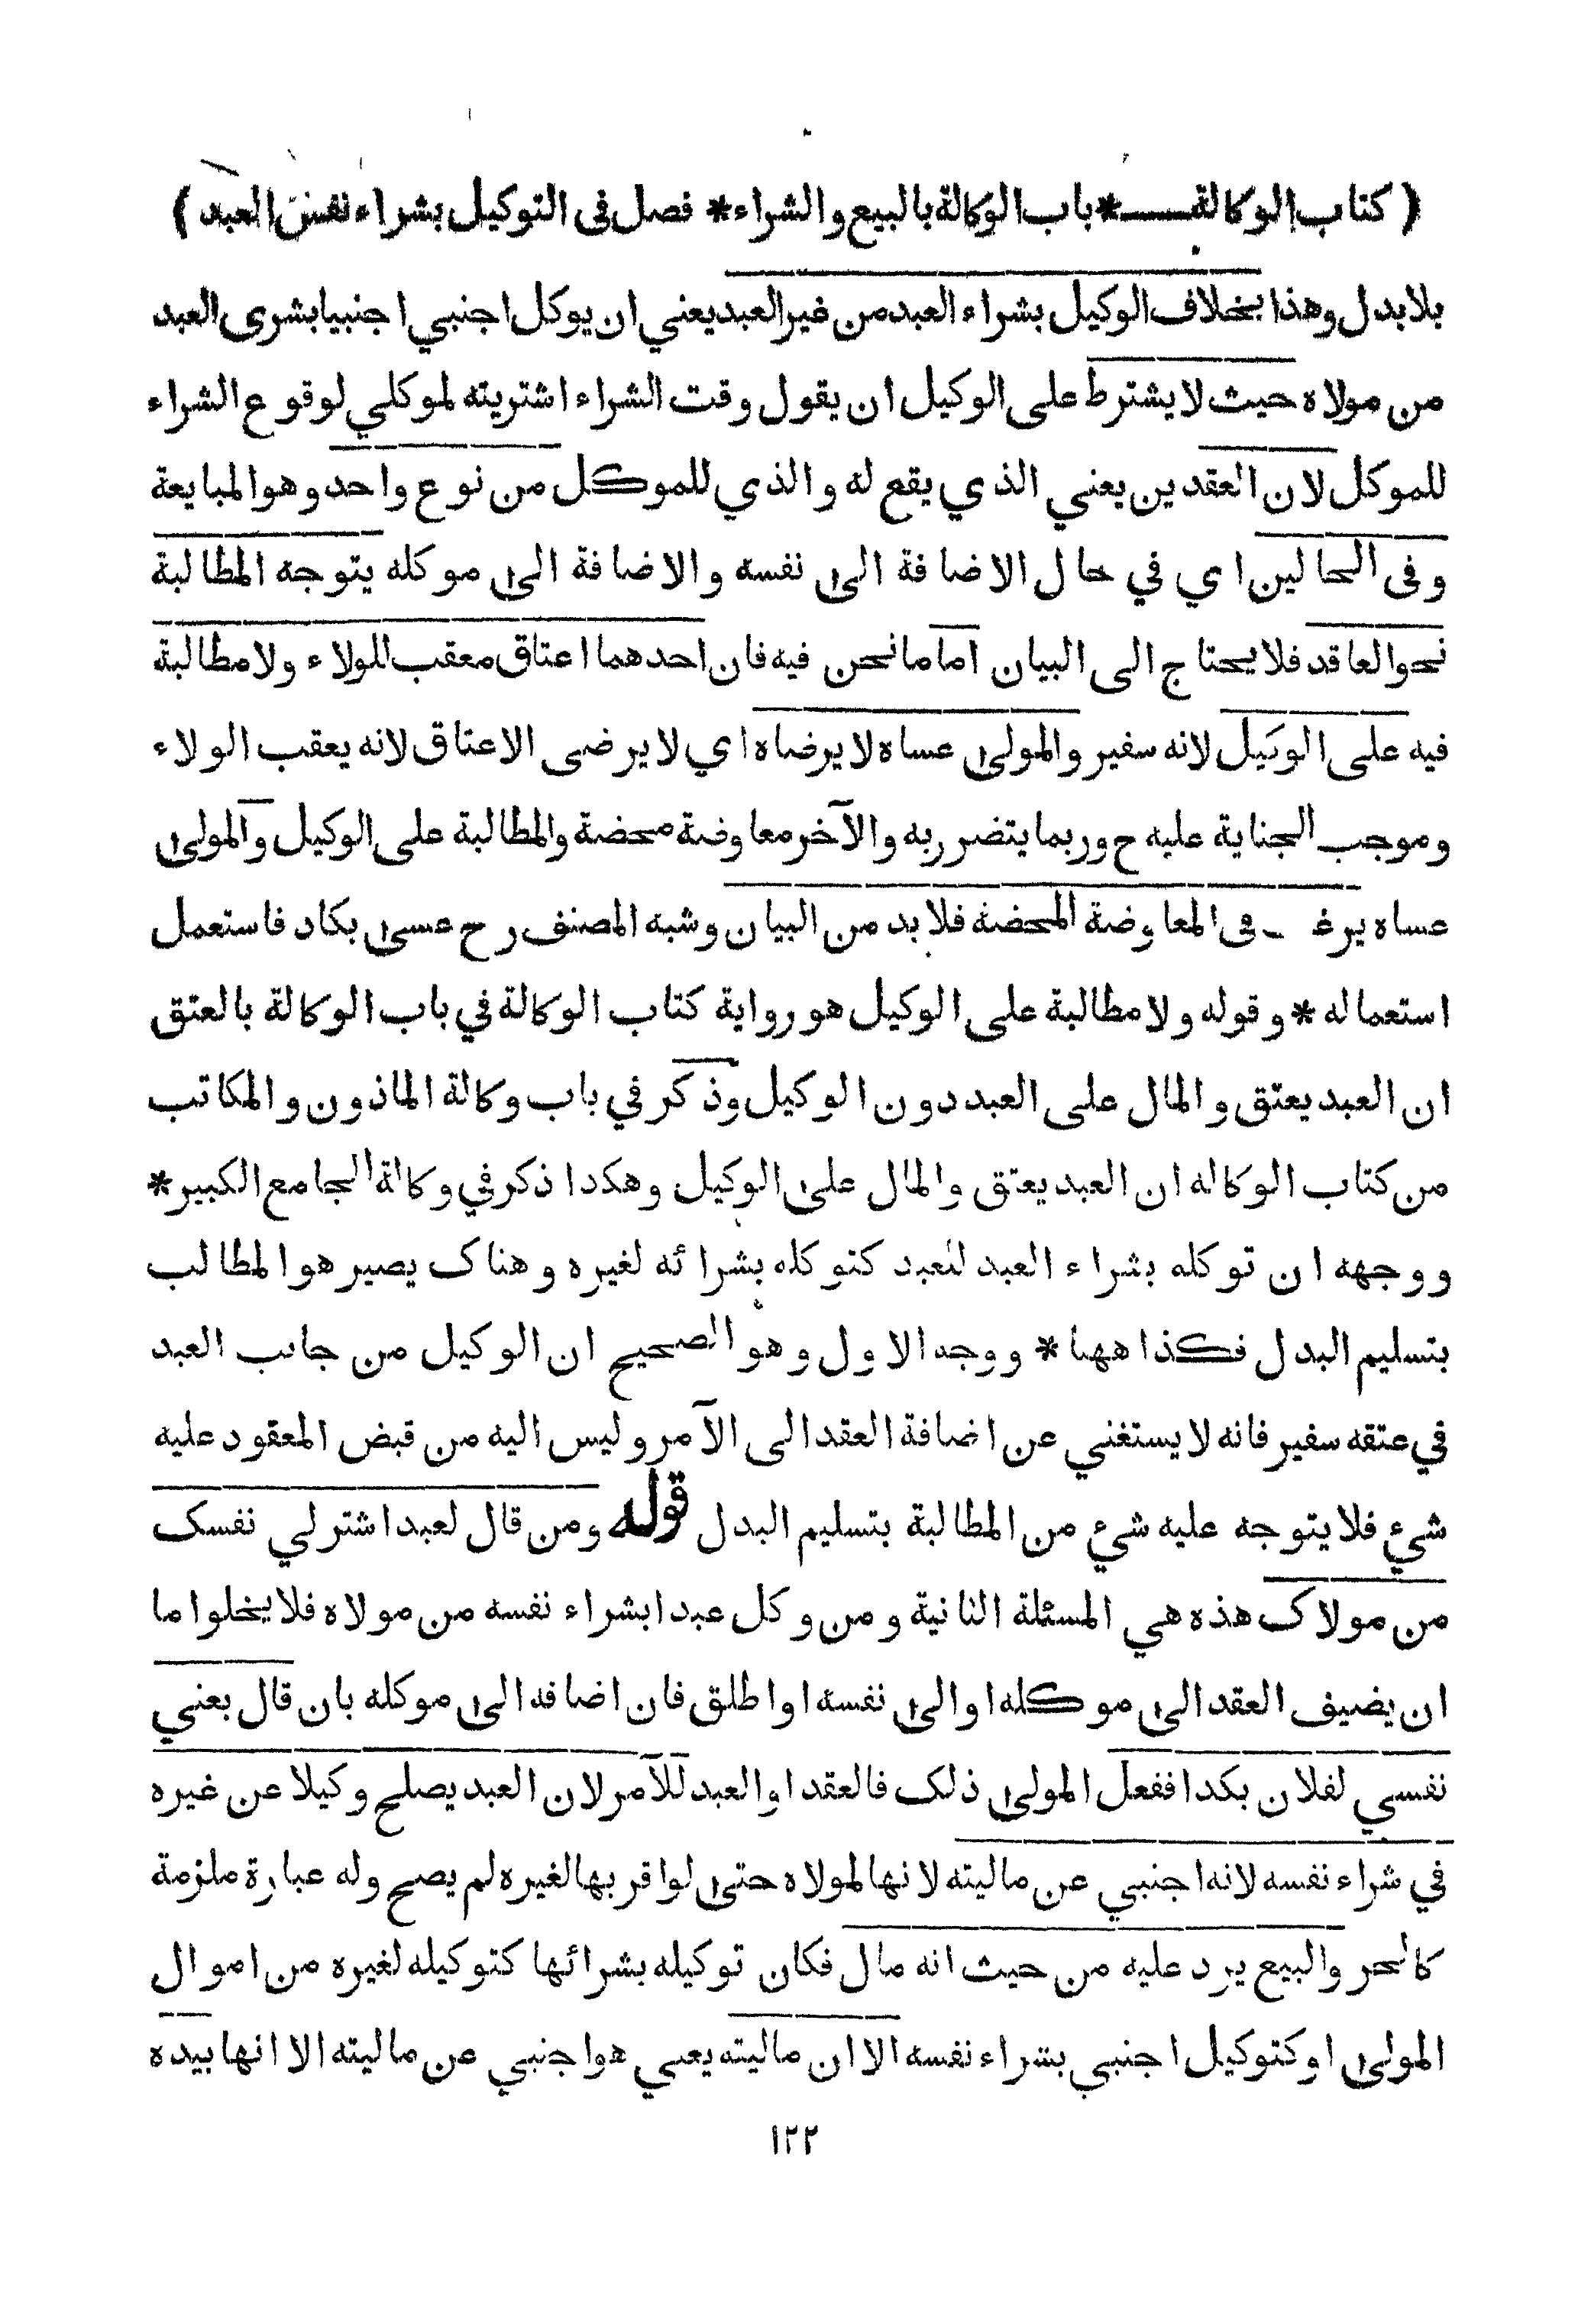 ( كتاب الوكالة * باب الوكالة بالبيع والشراء * فصل فى التوكيل بشراء نفس العبد )
بلا بدل وهذا بخلاف الوكيل بشراء العبد من غير العبد يعني ان يوكل اجنبي اجنبيا بشرى العبد
من مولاه حيث لا يشترط على الوكيل ان يقول وقت الشراء اشتريته لموكلي لوقوع الشراء
للموكل لان العقدين يعني الذي يقع له والذي للموكل من نوع واحد وهو المبايعة
وفى الحالين اي في حال الاضافة الى نفسه والاضافة الى موكله يتوجه المطالبة
نحو العاقد فلا يحتاج الى البيان اما ما نحن فيه فان احدهما اعتاق معقب للولاء ولا مطالبة
فيه على الوكيل لانه سفير والمولى عساه لا يرضاه اي لا يرضى الاعتاق لانه يعقب الولاء
وموجب الجناية عليه ح وربما يتضرر به والآخر معاوضة محضة والمطالبة على الوكيل والمولى
عساه يرغب فى المعاوضة المحضة فلا بد من البيان وشبه المصنف رح عسى بكاد فاستعمل
استعماله * وقوله ولا مطالبة على الوكيل هو رواية كتاب الوكالة في باب الوكالة بالعتق
ان العبد يعتق والمال على العبد دون الوكيل وذكر في باب وكالة الماذون والمكاتب
من كتاب الوكاله ان العبد يعتق والمال على الوكيل وهكذا ذكر في وكالة الجامع الكبير *
ووجهه ان توكله بشراء العبد للعبد كتوكله بشرائه لغيره وهناك يصير هو المطالب
بتسليم البدل فكذا ههنا * ووجه الاول وهو الصحيح ان الوكيل من جانب العبد
في عتقه سفير فانه لا يستغني عن اضافة العقد الى الآمر وليس اليه من قبض المعقود عليه
شيء فلا يتوجه عليه شيء من المطالبة بتسليم البدل قوله ومن قال لعبد اشتر لي نفسك
من مولاك هذه هي المسئلة الثانية ومن وكل عبدا بشراء نفسه من مولاه فلا يخلوا ما
ان يضيف العقد الى موكله او الى نفسه او اطلق فان اضافه الى موكله بان قال بعني
نفسي لفلان بكذا ففعل المولى ذلك فالعقد او العبد للآمر لان العبد يصلح وكيلا عن غيره
في شراء نفسه لانه اجنبي عن ماليته لانها لمولاه حتى لو اقر بها لغيره لم يصح وله عبارة ملزمة
كالحر والبيع يرد عليه من حيث انه مال فكان توكيله بشرائها كتوكيله لغيره من اموال
المولى او كتوكيل اجنبي بشراء نفسه الا ان ماليته يعني هو اجنبي عن ماليته الا انها بيده
١٢٢